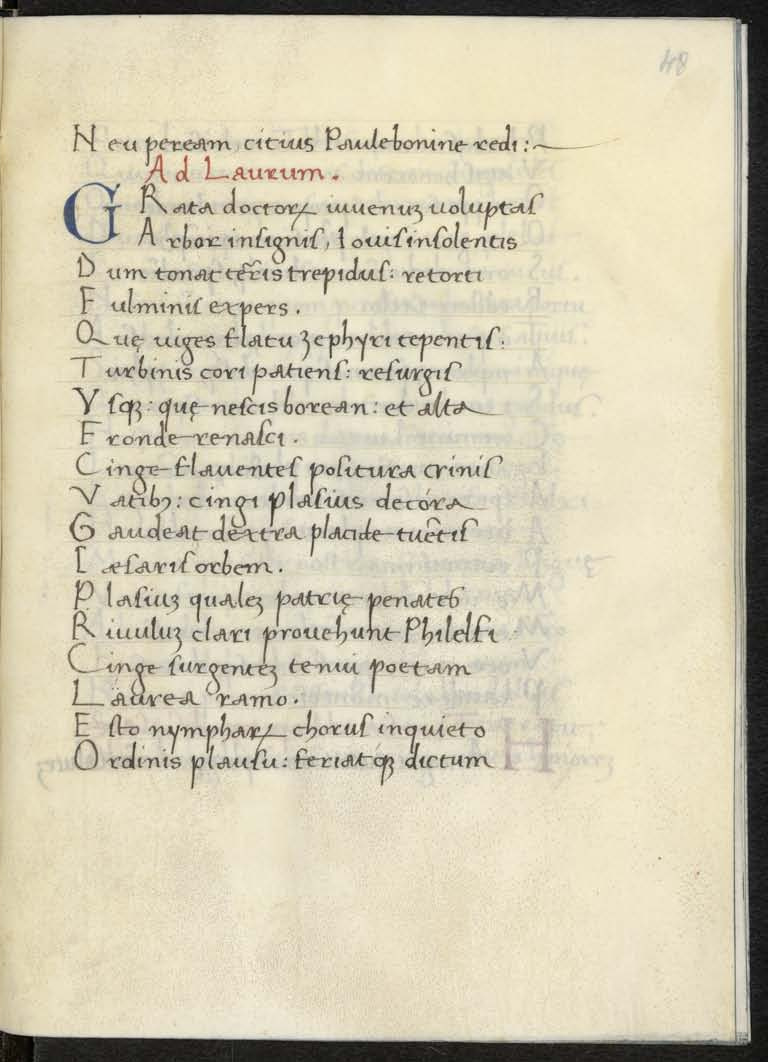 48
Neu peream, citius Paulebonine redi:
Ad Laurum.
GRata doctoꝝ iuuenuꝫ uoluptas
Arbor insignis, Iouis insolentis
Dum tonat terr̃is trepidus: retorti
Fulminis expers.
Quę uiges flatu zephyri tepentis:
Turbinis cori patiens: resurgis
Vsqꝫ: quę nescis borean: et alta
Fronde renasci.
Cinge flauentes positura crinis
Vatibꝫ: cingi plasius decóra
Gaudeat dextra placide tuẽtis
Cæsaris orbem.
Plasiuꝫ qualeꝫ patrię penates
Riuuluꝫ clari prouehunt Philelfi
Cinge surgenteꝫ tenui poetam
Laurea ramo.
Esto nymphaꝝ chorus inquieto
Ordinis plausu: feriatqꝫ dictum